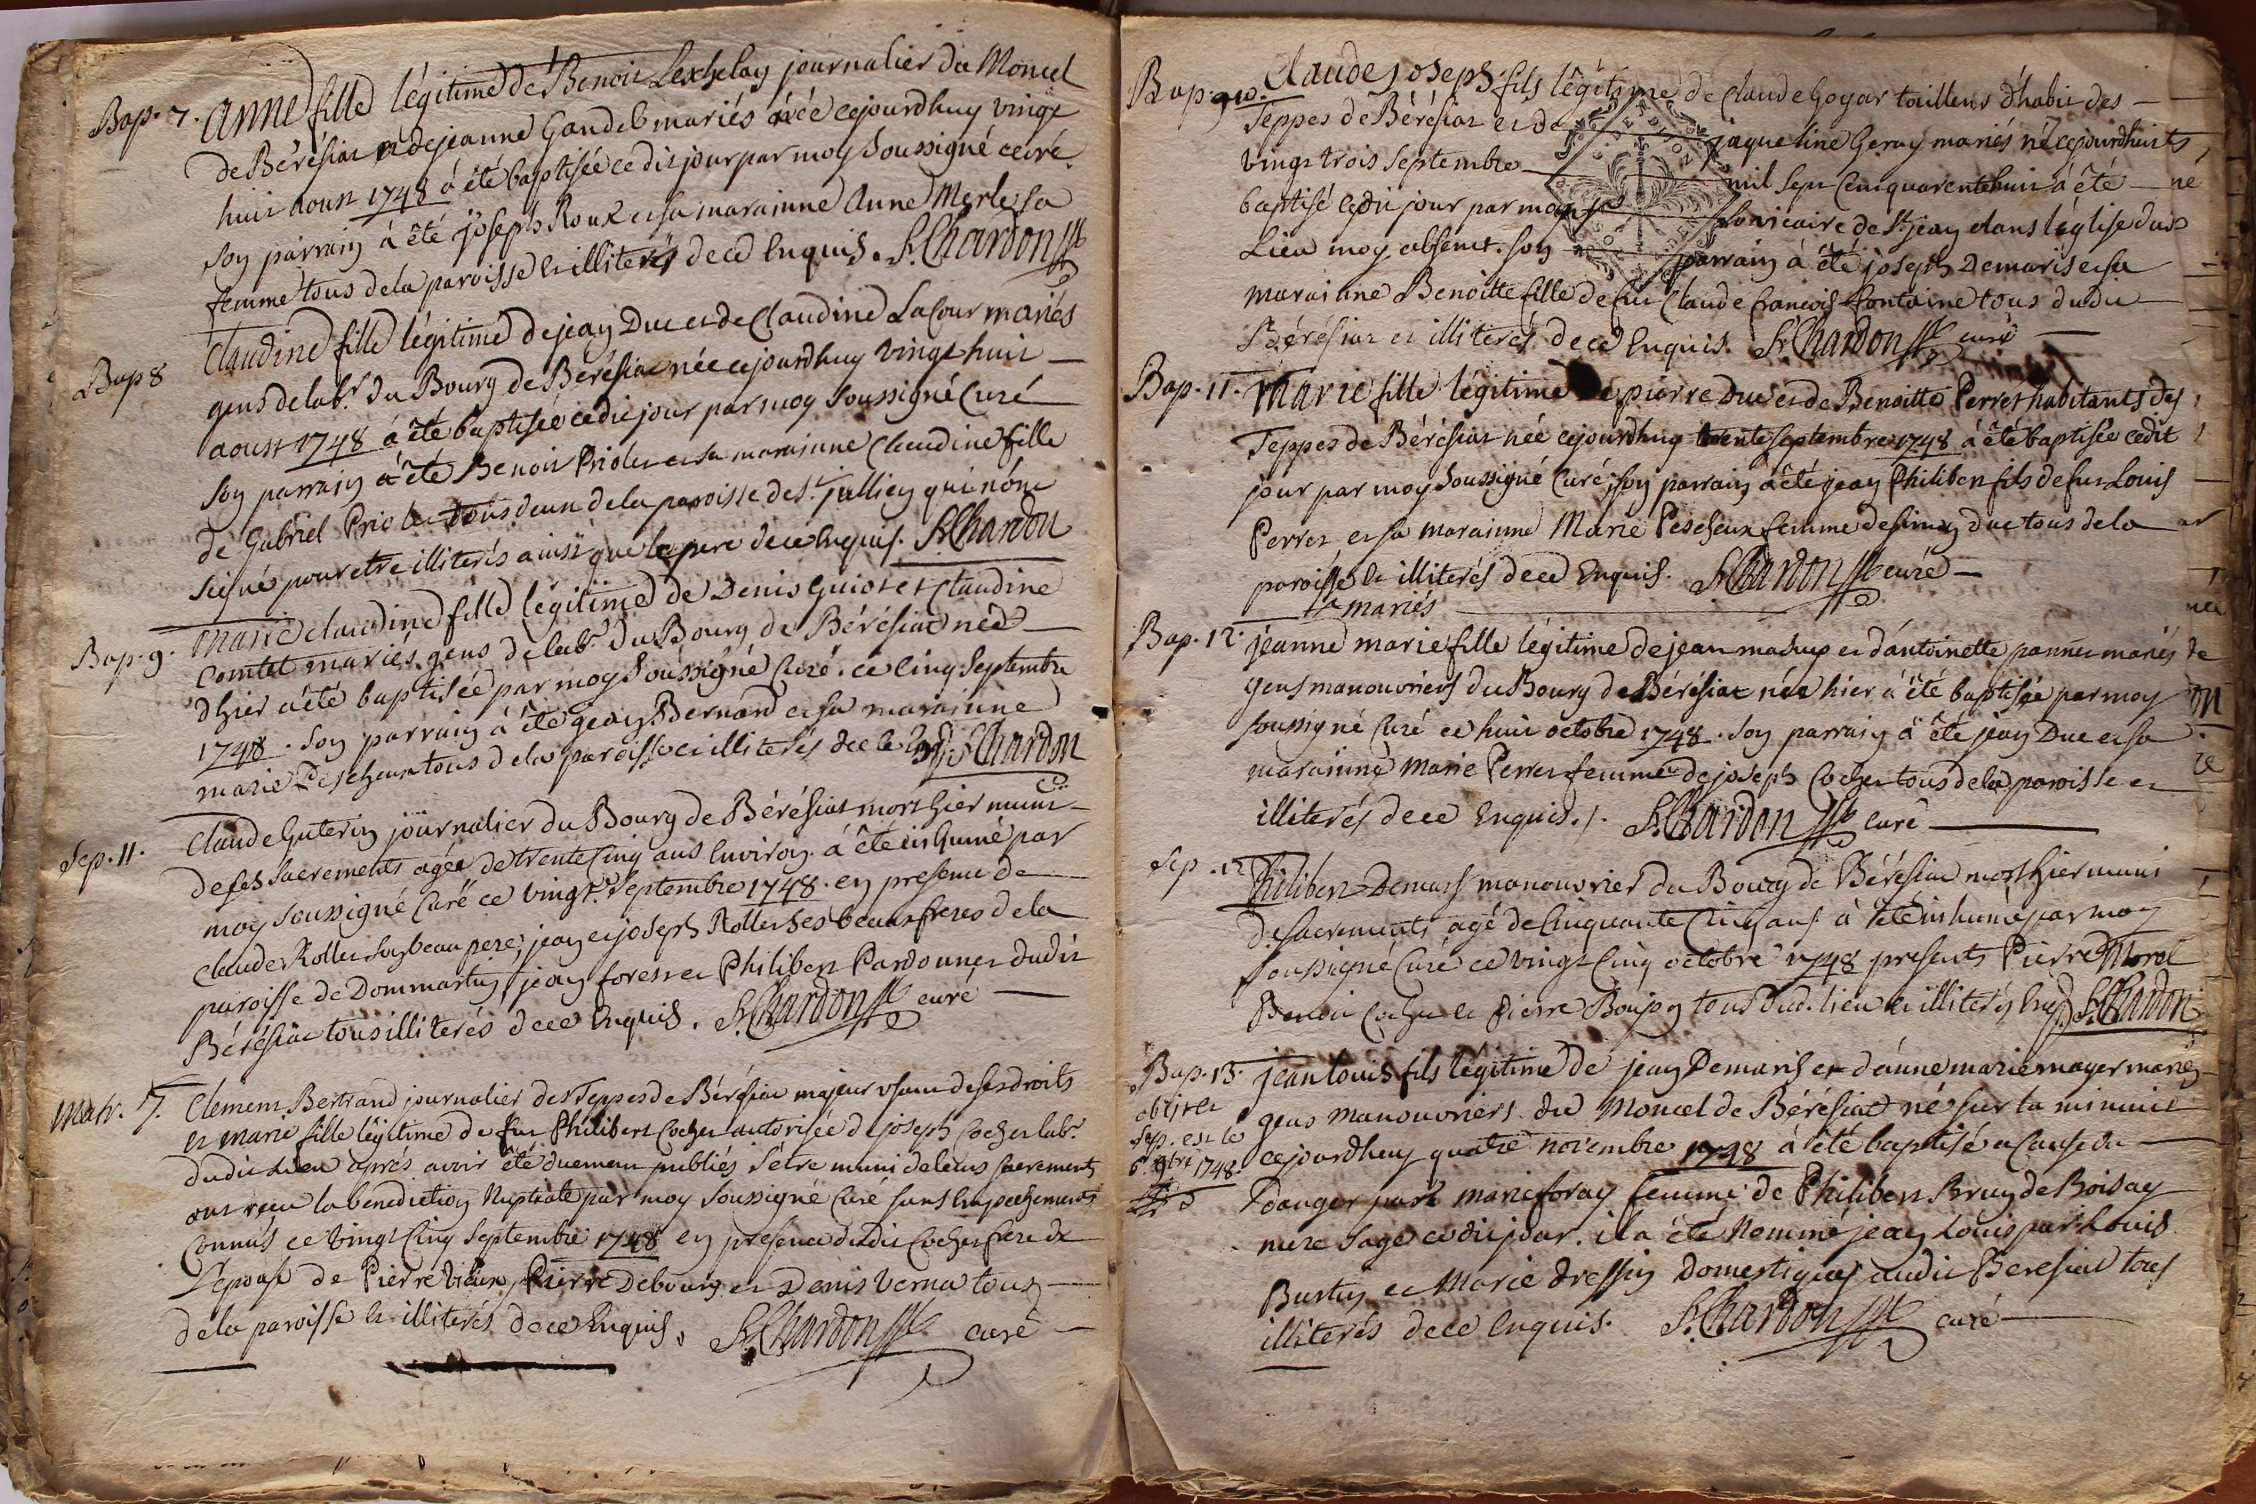 Bap. 7. anne fille légitime de Benoit Lexhelay journalier du Moncel
de Bérésiat et de jeanne Gandel mariés née cejourdhuy vingt
huit aoust 1748 a été baptisée cedit jour par moy Soussigné curé.
son parrain a été joseph Roux et sa marainne Anne Merle sa
femme tous de la paroisse et illiterés de ce Enquis. Sr. Chardon
Bap 8 Claudine fille légitime de jean Duc et de Claudine Lacour mariés
gens de labr. du Bourg de Bérésiat née cejourdhuy vingt huit
aoust 1748 a été baptisée cedit jour par moy Soussigné Curé
Son parrain a été Benoit Prioler et sa marainne Claudine fille
de Gabriel Prioler tous deux de la paroisse de st. jullien qui n'ont
Signé pour etre illiterés ainsi que le pere de ce Enquis. Sr Chardon
Bap. 9. Marie claudine fille légitime de Denis Guiot et Claudine
Comtet mariés, gens de labr. du Bourg de Bérésiat née
dhier a été baptisée par moy Soussigné Curé. ce Cinq Septembre
1748. Son parrain a été jean Bernard et sa marainne
marie Pescheux tous de la paroisse et illiterés de ce Enq. Sr Chardon
Sep. 11. Claude Guterin journalier du Bourg de Bérésiat mort hier muni
de ses Sacrements agée de trente Cinq ans Environ. a été inhumé par
moy Soussigné Curé ce vingt. Septembre 1748. en presence de
Claude Roller Son beau pere, jean et joseph Roller ses beaux freres de la
paroisse de Dommartin, jean forest et Philibert Pardonner dudit
Bérésiat tous illiterés de ce Enquis. Sr. Chardon curé
Matr. 7. Clement Bertrand journalier des Teppes de Bérésiat majeur usant de ses droits
et marie fille légitime de fut Philibert Cocher autorisée de joseph Cocher labr.
dudit Lieu aprés avoir été duement publiés s'etre muni de leurs sacrements
ont reçu la benediction Nuptiale par moy Soussigné Curé sans Empechements
Connus ce vingt Cinq Septembre 1748 en presence dudit Cocher frere de
L'epouse de Pierre Vieux, Pierre Debourg et Denis Verna tous
de la paroisse et illiterés de ce Enquis, Sr. Chardon curé
Bap. 10. Claude joseph fils légitime de Claude Goyar tailleur d'habit des
Teppes de Bérésiat et de jaqueline Geray mariés né cejourdhuit
vingt trois Septembre mil Sept Cens quarente huit a été
baptisé cedit jour par mons. vicaire de St. jean dans l'église dud
Lieu moy absent. Son parrain a été joseph Demaris et sa
marainne Benoitte fille de fut Claude francois fontaine tous dudit
Bérésiat et illiterés de ce Enquis. Sr Chardon curé
Bap. 11. Marie fille légitime de pierre Duc et de Benoitte Perret habitants des
Teppes de Bérésiat née cejourdhuy trente septembre 1748 a été baptisée cedit
jour par moy Soussigné Curé, Son parrain a été jean Philibert fils de fut Louis
Perret et sa marainne Marie Pescheux femme de simon duc tous de la
paroisse et illiterés de ce Enquis. Sr Chardon curé
mariés
Bap. 12. jeanne marie fille légitime de jean et d'antoinette pannet mariés
gens manouvriers du Bourg de Bérésiat née hier a été baptisée par moy
soussigné Curé ce huit octobre 1748. Son parrain a été jean Duc et sa
marainne Marie Perret femme de joseph Cocher tous de la paroisse et
illiterés de ce Enquis. Sr. Chardon curé
Sep. 12 Philibert Demars manouvrier du Bourg de Bérésiat mort hier muni
de Sacrements agé de Cinquante Cinq ans a été inhumé par moy
Soussigné Curé ce vingt Cinq octobre 1748 presents Pierre Morel
Benoit Cocher et Pierre Boujon tous dud. lieu et illiterés Enq. Sr. Chardon
Bap. 13. jean louis fils légitime de jean Demaris et d'anne marie mayer mariés
gens manouvriers du Moncel de Bérésiat né sur la minuit
cejourdhuy quatre novembre 1748 a été baptisé a Cause du
danger par marie foray femme de Philibert Bruy de Boisay
mere Sage cedit jour. il a été Nommé jean Louis par Louis
Burtin et Marie dressin Domestiques audit Beresiat tous
illiterés de ce Enquis. Sr. Chardon curé
obiit et
sep. est le
6. 9bre 1748.